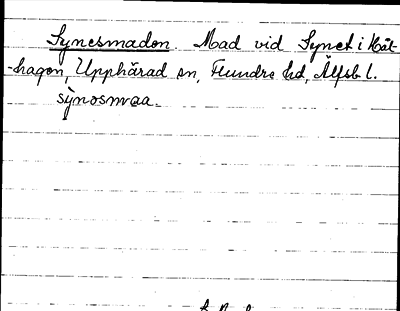 Synesmaden. Mad vid Synet i Håt-
-hagen, Upphärad sn, Flundre hd, Älfsb l.
sỳnosmaa.